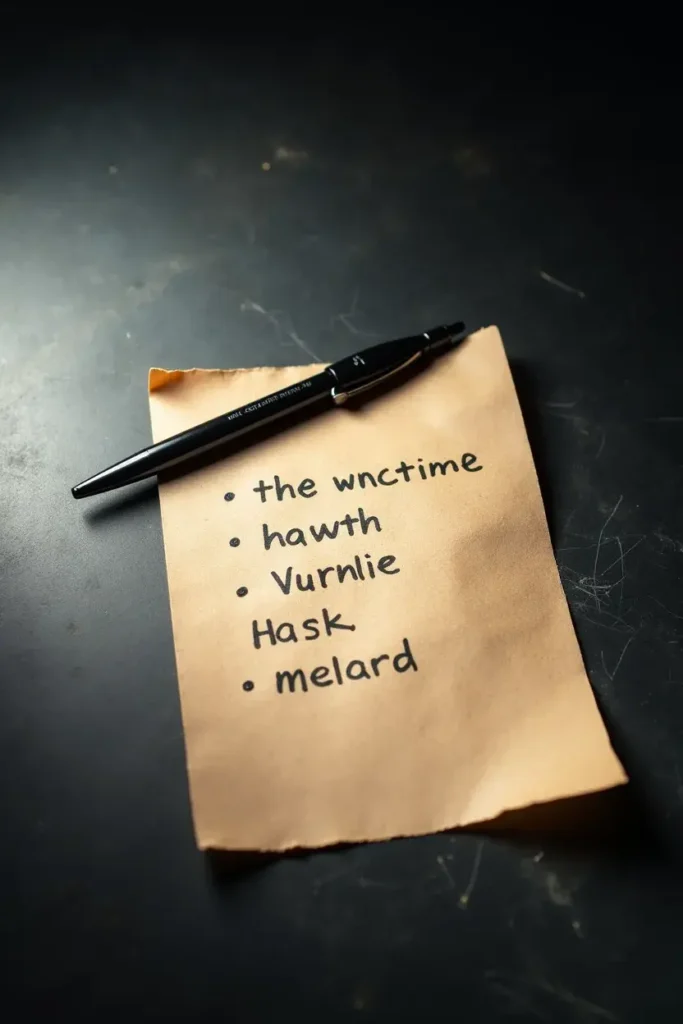 • the wnctime
• hawth
• Vurnlie
Hask
• melard